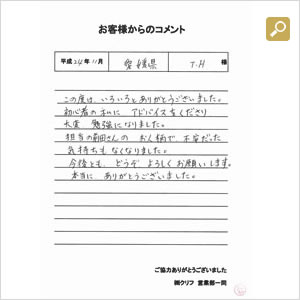 お客様からのコメント
平成 24年 11月 愛媛県 T.H 様
この度は、いろいろとありがとうございました。
初心者の私に アドバイスをくださり
大変 勉強になりました。
担当の前田さんの お人柄で、不安だった
気持ちも なくなりました。
今後とも、どうぞ よろしくお願いします。
本当に、ありがとうございました。
ご協力ありがとうございました
㈱クリフ 営業部一同